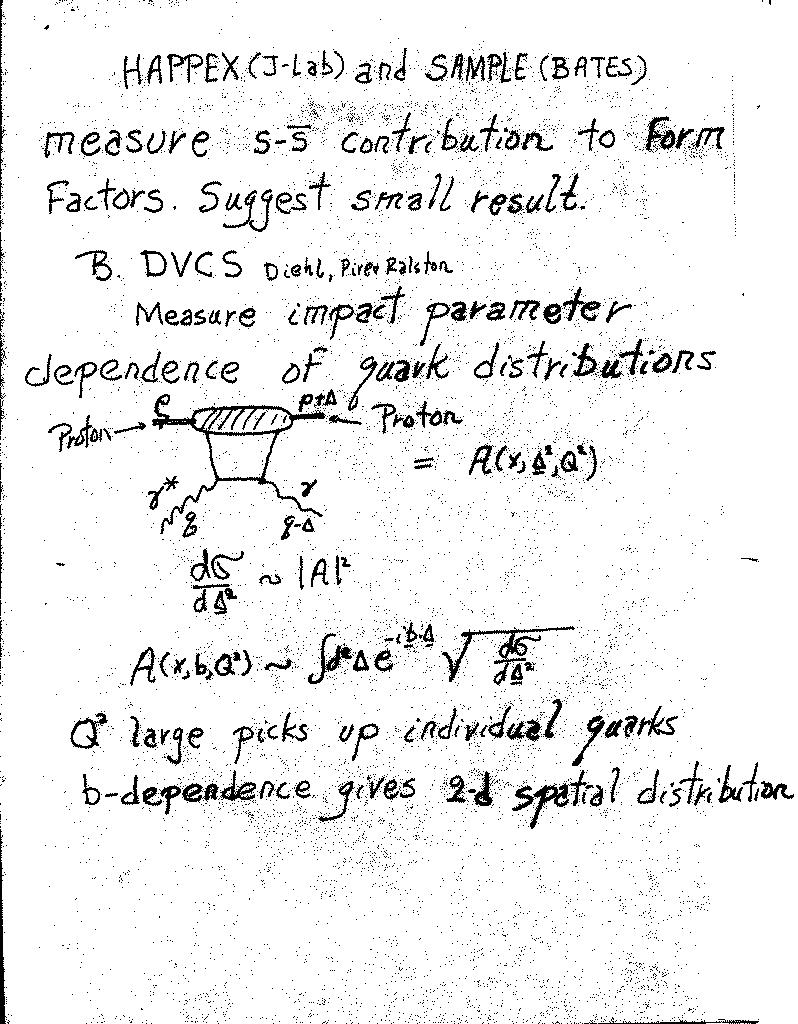 HAPPEX (J-Lab) and SAMPLE (BATES)
measure s-s̄ contribution to Form
Factors. Suggest small result.
B. DVCS Diehl, Pire, Ralston
Measure impact parameter
dependence of quark distributions
p p+Δ
Proton → ← Proton
= A(x, Δ², Q²)
γ* γ
q q-Δ
dσ/dΔ² ~ |A|²
A(x,b,Q²) ~ ∫d²Δ e^{-ib·Δ} √(dσ/dΔ²)
Q² large picks up individual quarks
b-dependence gives 2-d spatial distribution